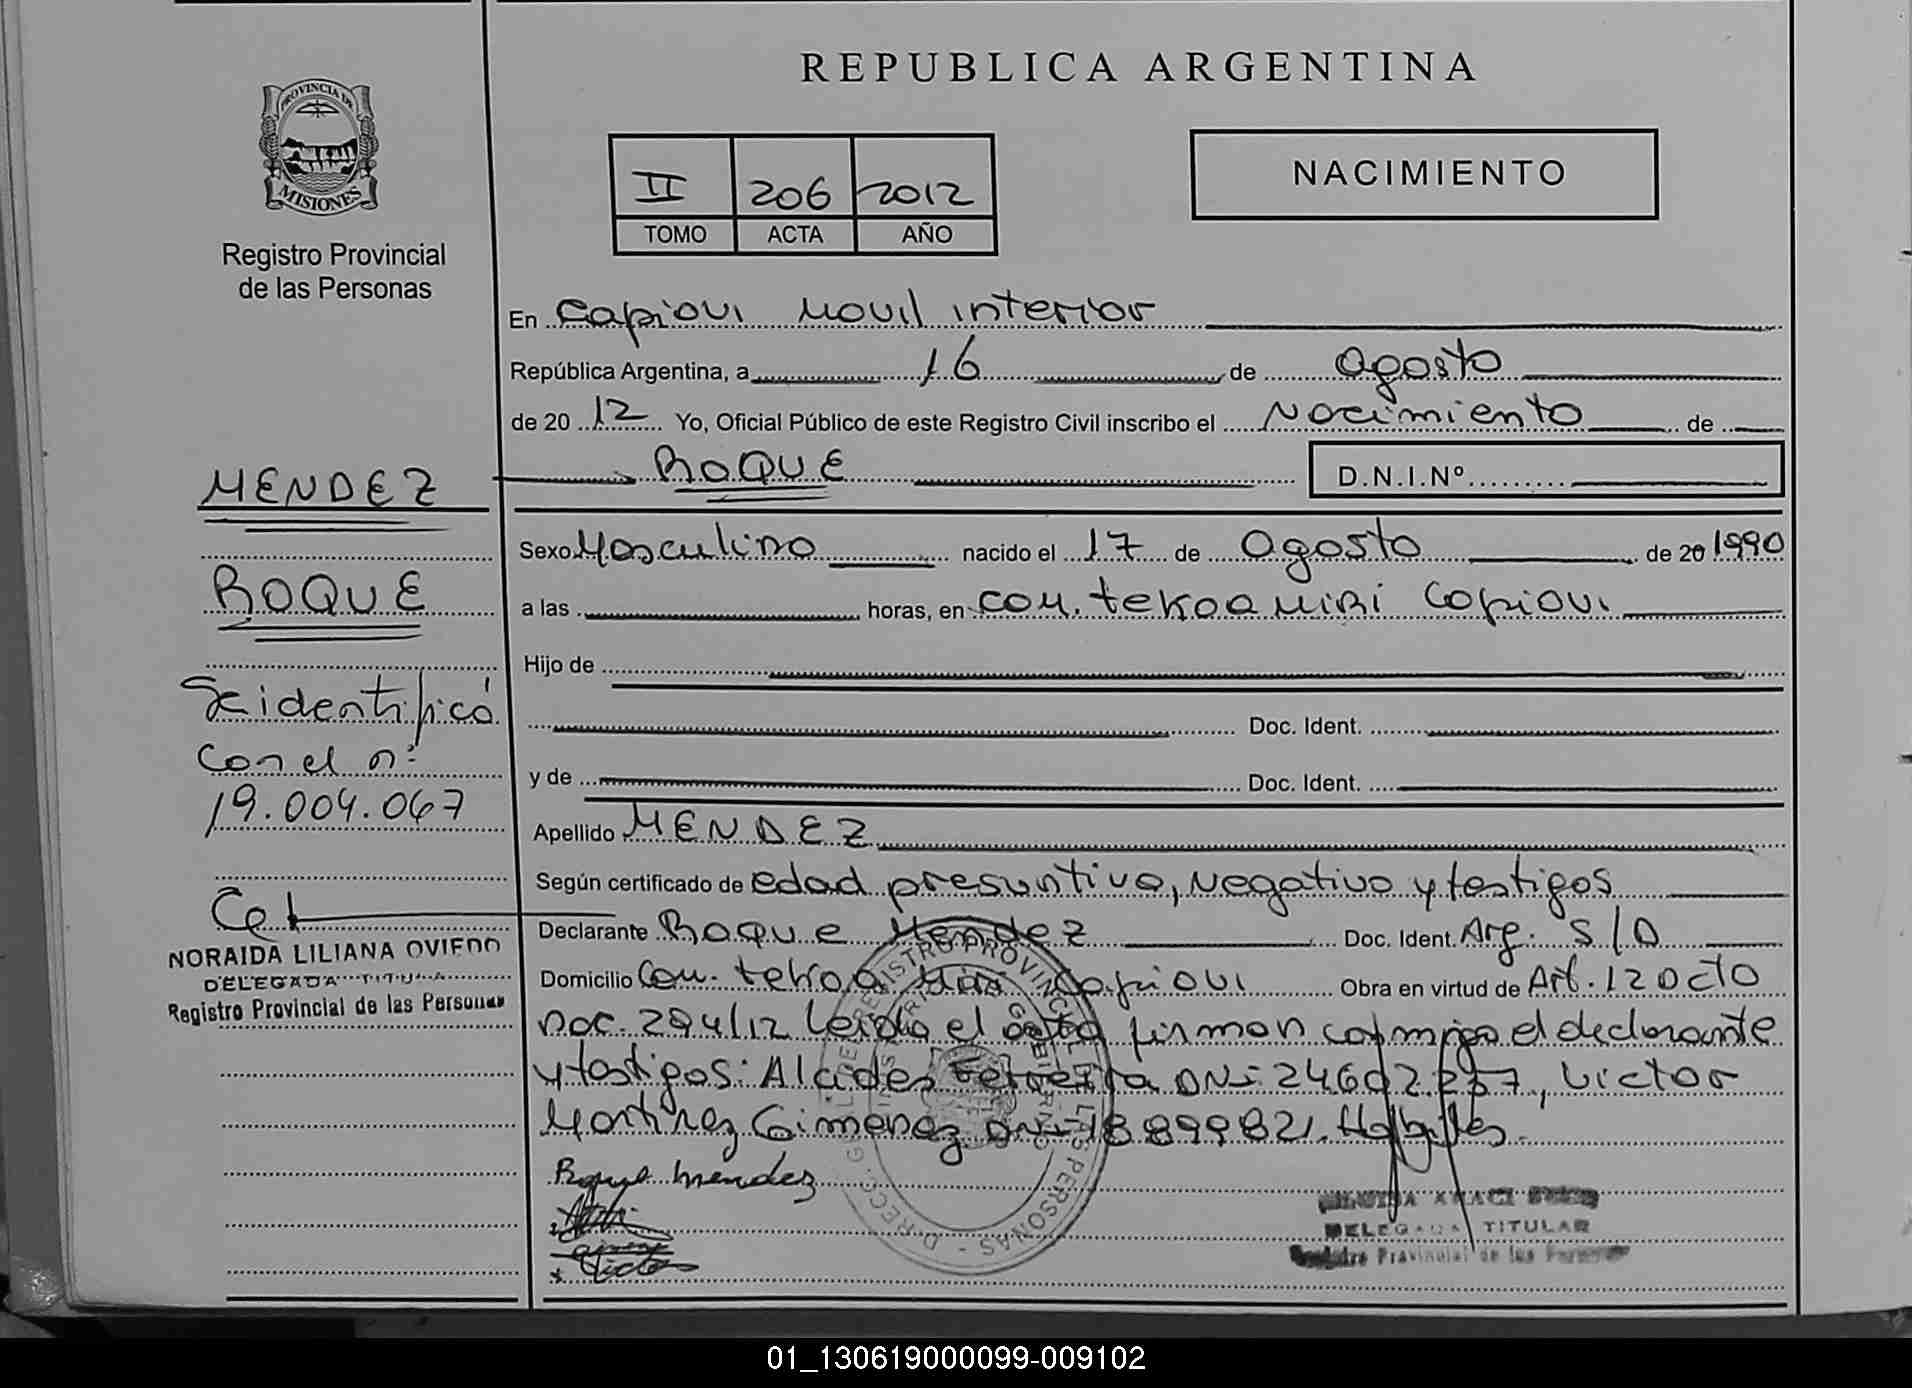 REPUBLICA ARGENTINA
PROVINCIA DE
MISIONES
Registro Provincial
de las Personas
NACIMIENTO
II 206 2012
TOMO ACTA AÑO
En Capiovi Movil interior
República Argentina, a 16 de agosto
de 2012 Yo, Oficial Público de este Registro Civil inscribo el Nacimiento de
ROQUE D.N.I.Nº
MENDEZ
ROQUE
Se identificó
con el nº
19.004.067
NORAIDA LILIANA OVIEDO
DELEGADA TITULAR
Registro Provincial de las Personas
Sexo Masculino nacido el 17 de agosto de 20 1990
a las horas, en Com. tekoa miri Capiovi
Hijo de
Doc. Ident.
y de Doc. Ident.
Apellido MENDEZ
Según certificado de edad presuntiva, Negativo y testigos
Declarante Roque Mendez Doc. Ident. Arg. S/D
Domicilio Com. tekoa Miri Capiovi Obra en virtud de Art. 1 2 Dcto
Nac. 294/12 Leida el acta firman conmigo el declarante
y testigos: Alcides Ferreira DNI 24602257, Victor
Martinez Gimenez DNI 18899821. Habiles.
Roque Mendez
Victor
DELEGADA TITULAR
Registro Provincial de las Personas
01_130619000099-009102